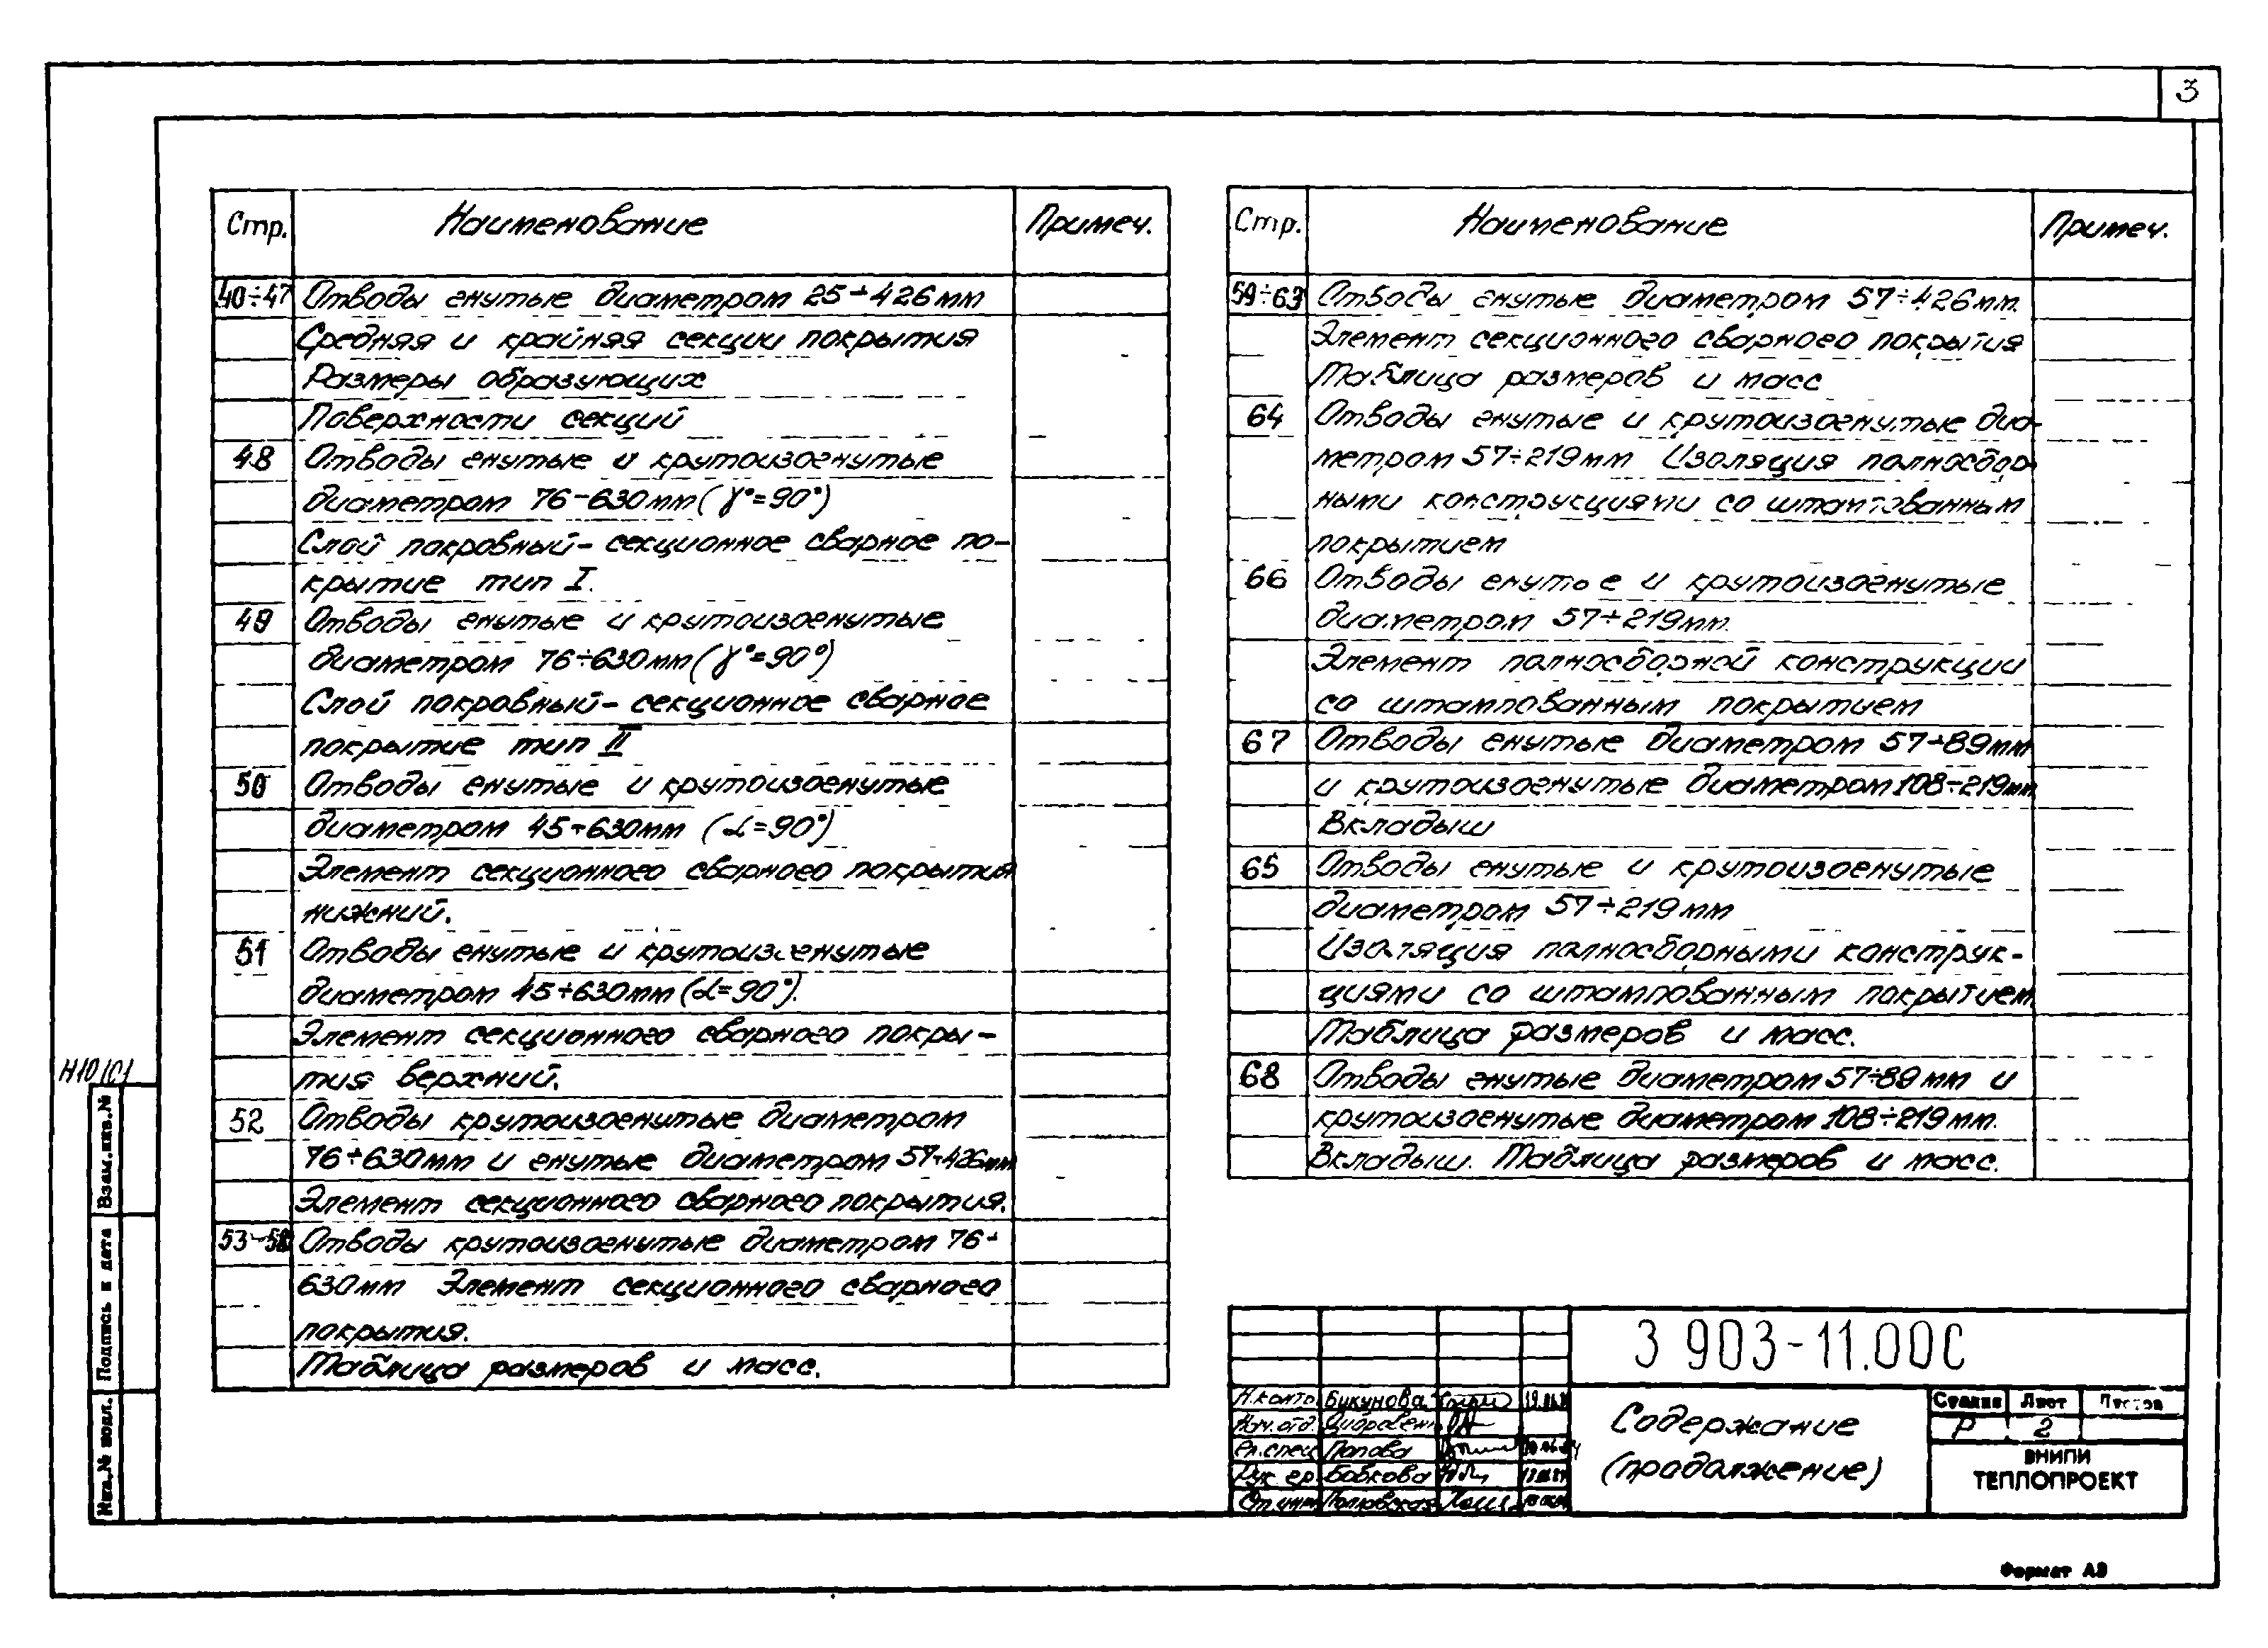 3
Стр. Наименование Примеч.
40÷47 Отводы гнутые диаметром 25÷426мм
Средняя и крайняя секции покрытия
Размеры образующих
Поверхности секций
48 Отводы гнутые и крутоизогнутые
диаметром 76÷630мм (γ°=90°)
Слой покровный- секционное сварное по-
крытие тип I.
49 Отводы гнутые и крутоизогнутые
диаметром 76÷630мм (γ°=90°)
Слой покровный- секционное сварное
покрытие тип II
50 Отводы гнутые и крутоизогнутые
диаметром 45÷630мм (α=90°)
Элемент секционного сварного покрытия
нижний.
51 Отводы гнутые и крутоизогнутые
диаметром 45÷630мм (α=90°).
Элемент секционного сварного покры-
тия верхний.
52 Отводы крутоизогнутые диаметром
76÷630мм и гнутые диаметром 57÷426мм
Элемент секционного сварного покрытия.
53÷58 Отводы крутоизогнутые диаметром 76÷
630мм Элемент секционного сварного
покрытия.
Таблица размеров и масс.
Стр. Наименование Примеч.
59÷63 Отводы гнутые диаметром 57÷426мм.
Элемент секционного сварного покрытия
Таблица размеров и масс
64 Отводы гнутые и крутоизогнутые диа-
метром 57÷219мм Изоляция полносбор-
ными конструкциями со штампованным
покрытием
66 Отводы гнутые и крутоизогнутые
диаметром 57÷219мм.
Элемент полносборной конструкции
со штампованным покрытием
67 Отводы гнутые диаметром 57÷89мм
и крутоизогнутые диаметром 108÷219мм
Вкладыш
65 Отводы гнутые и крутоизогнутые
диаметром 57÷219мм
Изоляция полносборными конструк-
циями со штампованным покрытием.
Таблица размеров и масс.
68 Отводы гнутые диаметром 57÷89мм и
крутоизогнутые диаметром 108÷219мм.
Вкладыш. Таблица размеров и масс.
Н10101
Взам.инв.№
Подпись и дата
Инв.№ подл.
3 903-11.00С
Н.контр. Букунова
Нач.отд.
Гл.спец. Попова
Рук. гр. Бобкова
Ст.инж.
Содержание
(продолжение)
Стадия Лист Листов
Р 2
ВНИПИ
ТЕПЛОПРОЕКТ
Формат А3